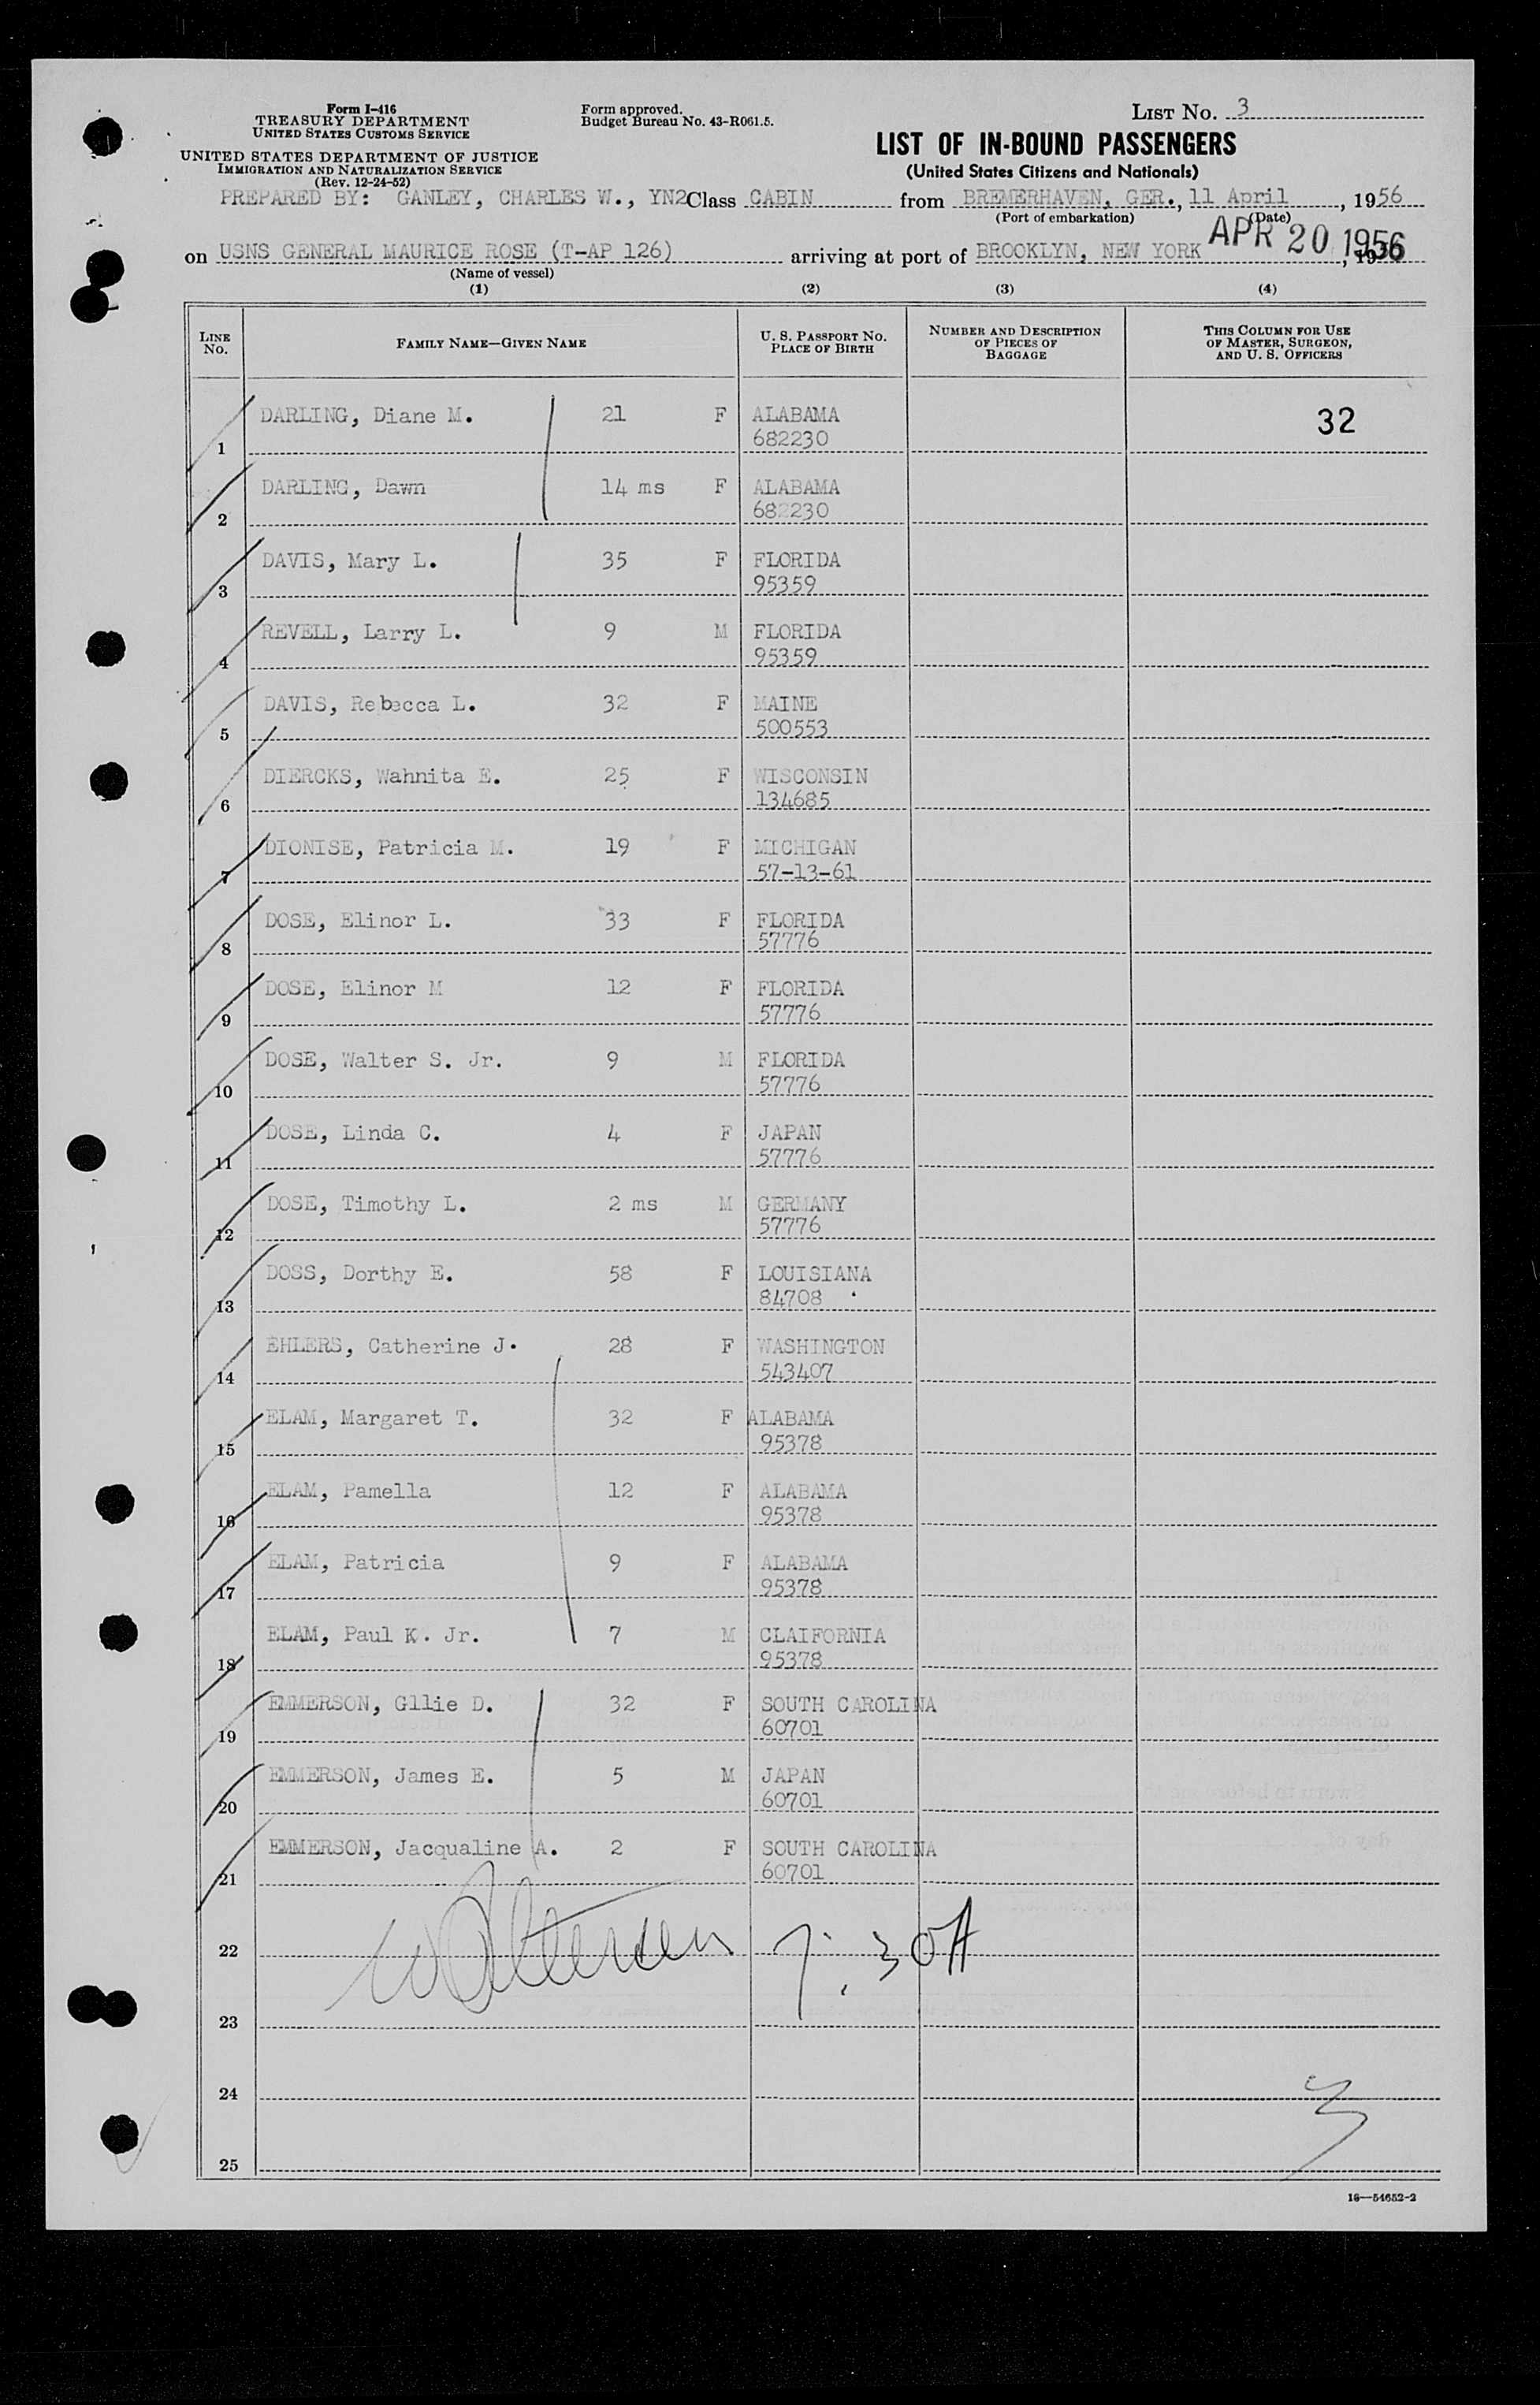 Form I-416
TREASURY DEPARTMENT
UNITED STATES CUSTOMS SERVICE
UNITED STATES DEPARTMENT OF JUSTICE
IMMIGRATION AND NATURALIZATION SERVICE
(Rev. 12-24-52)
Form approved.
Budget Bureau No. 43-R061.5.
LIST NO. 3
LIST OF IN-BOUND PASSENGERS
(United States Citizens and Nationals)
PREPARED BY: GANLEY, CHARLES W., YN2 Class CABIN from BREMERHAVEN, GER., 11 April, 1956
(Port of embarkation) (Date)
on USNS GENERAL MAURICE ROSE (T-AP 126) arriving at port of BROOKLYN, NEW YORK APR 20 1956
(Name of vessel)
(1) (2) (3) (4)
LINE NO. FAMILY NAME—GIVEN NAME U. S. PASSPORT NO. PLACE OF BIRTH NUMBER AND DESCRIPTION OF PIECES OF BAGGAGE THIS COLUMN FOR USE OF MASTER, SURGEON, AND U. S. OFFICERS
DARLING, Diane M. 21 F ALABAMA 32
1 682230
DARLING, Dawn 14 ms F ALABAMA
2 682230
DAVIS, Mary L. 35 F FLORIDA
3 95359
REVELL, Larry L. 9 M FLORIDA
4 95359
DAVIS, Rebecca L. 32 F MAINE
5 500553
DIERCKS, Wahnita E. 25 F WISCONSIN
6 134685
DIONISE, Patricia M. 19 F MICHIGAN
7 57-13-61
DOSE, Elinor L. 33 F FLORIDA
8 57776
DOSE, Elinor M 12 F FLORIDA
9 57776
DOSE, Walter S. Jr. 9 M FLORIDA
10 57776
DOSE, Linda C. 4 F JAPAN
11 57776
DOSE, Timothy L. 2 ms M GERMANY
12 57776
DOSS, Dorthy E. 58 F LOUISIANA
13 84708
EHLERS, Catherine J. 28 F WASHINGTON
14 543407
ELAM, Margaret T. 32 F ALABAMA
15 95378
ELAM, Pamella 12 F ALABAMA
16 95378
ELAM, Patricia 9 F ALABAMA
17 95378
ELAM, Paul K. Jr. 7 M CLAIFORNIA
18 95378
EMMERSON, Gllie D. 32 F SOUTH CAROLINA
19 60701
EMMERSON, James E. 5 M JAPAN
20 60701
EMMERSON, Jacqualine A. 2 F SOUTH CAROLINA
21 60701
22
23
24
25
16—54652-2